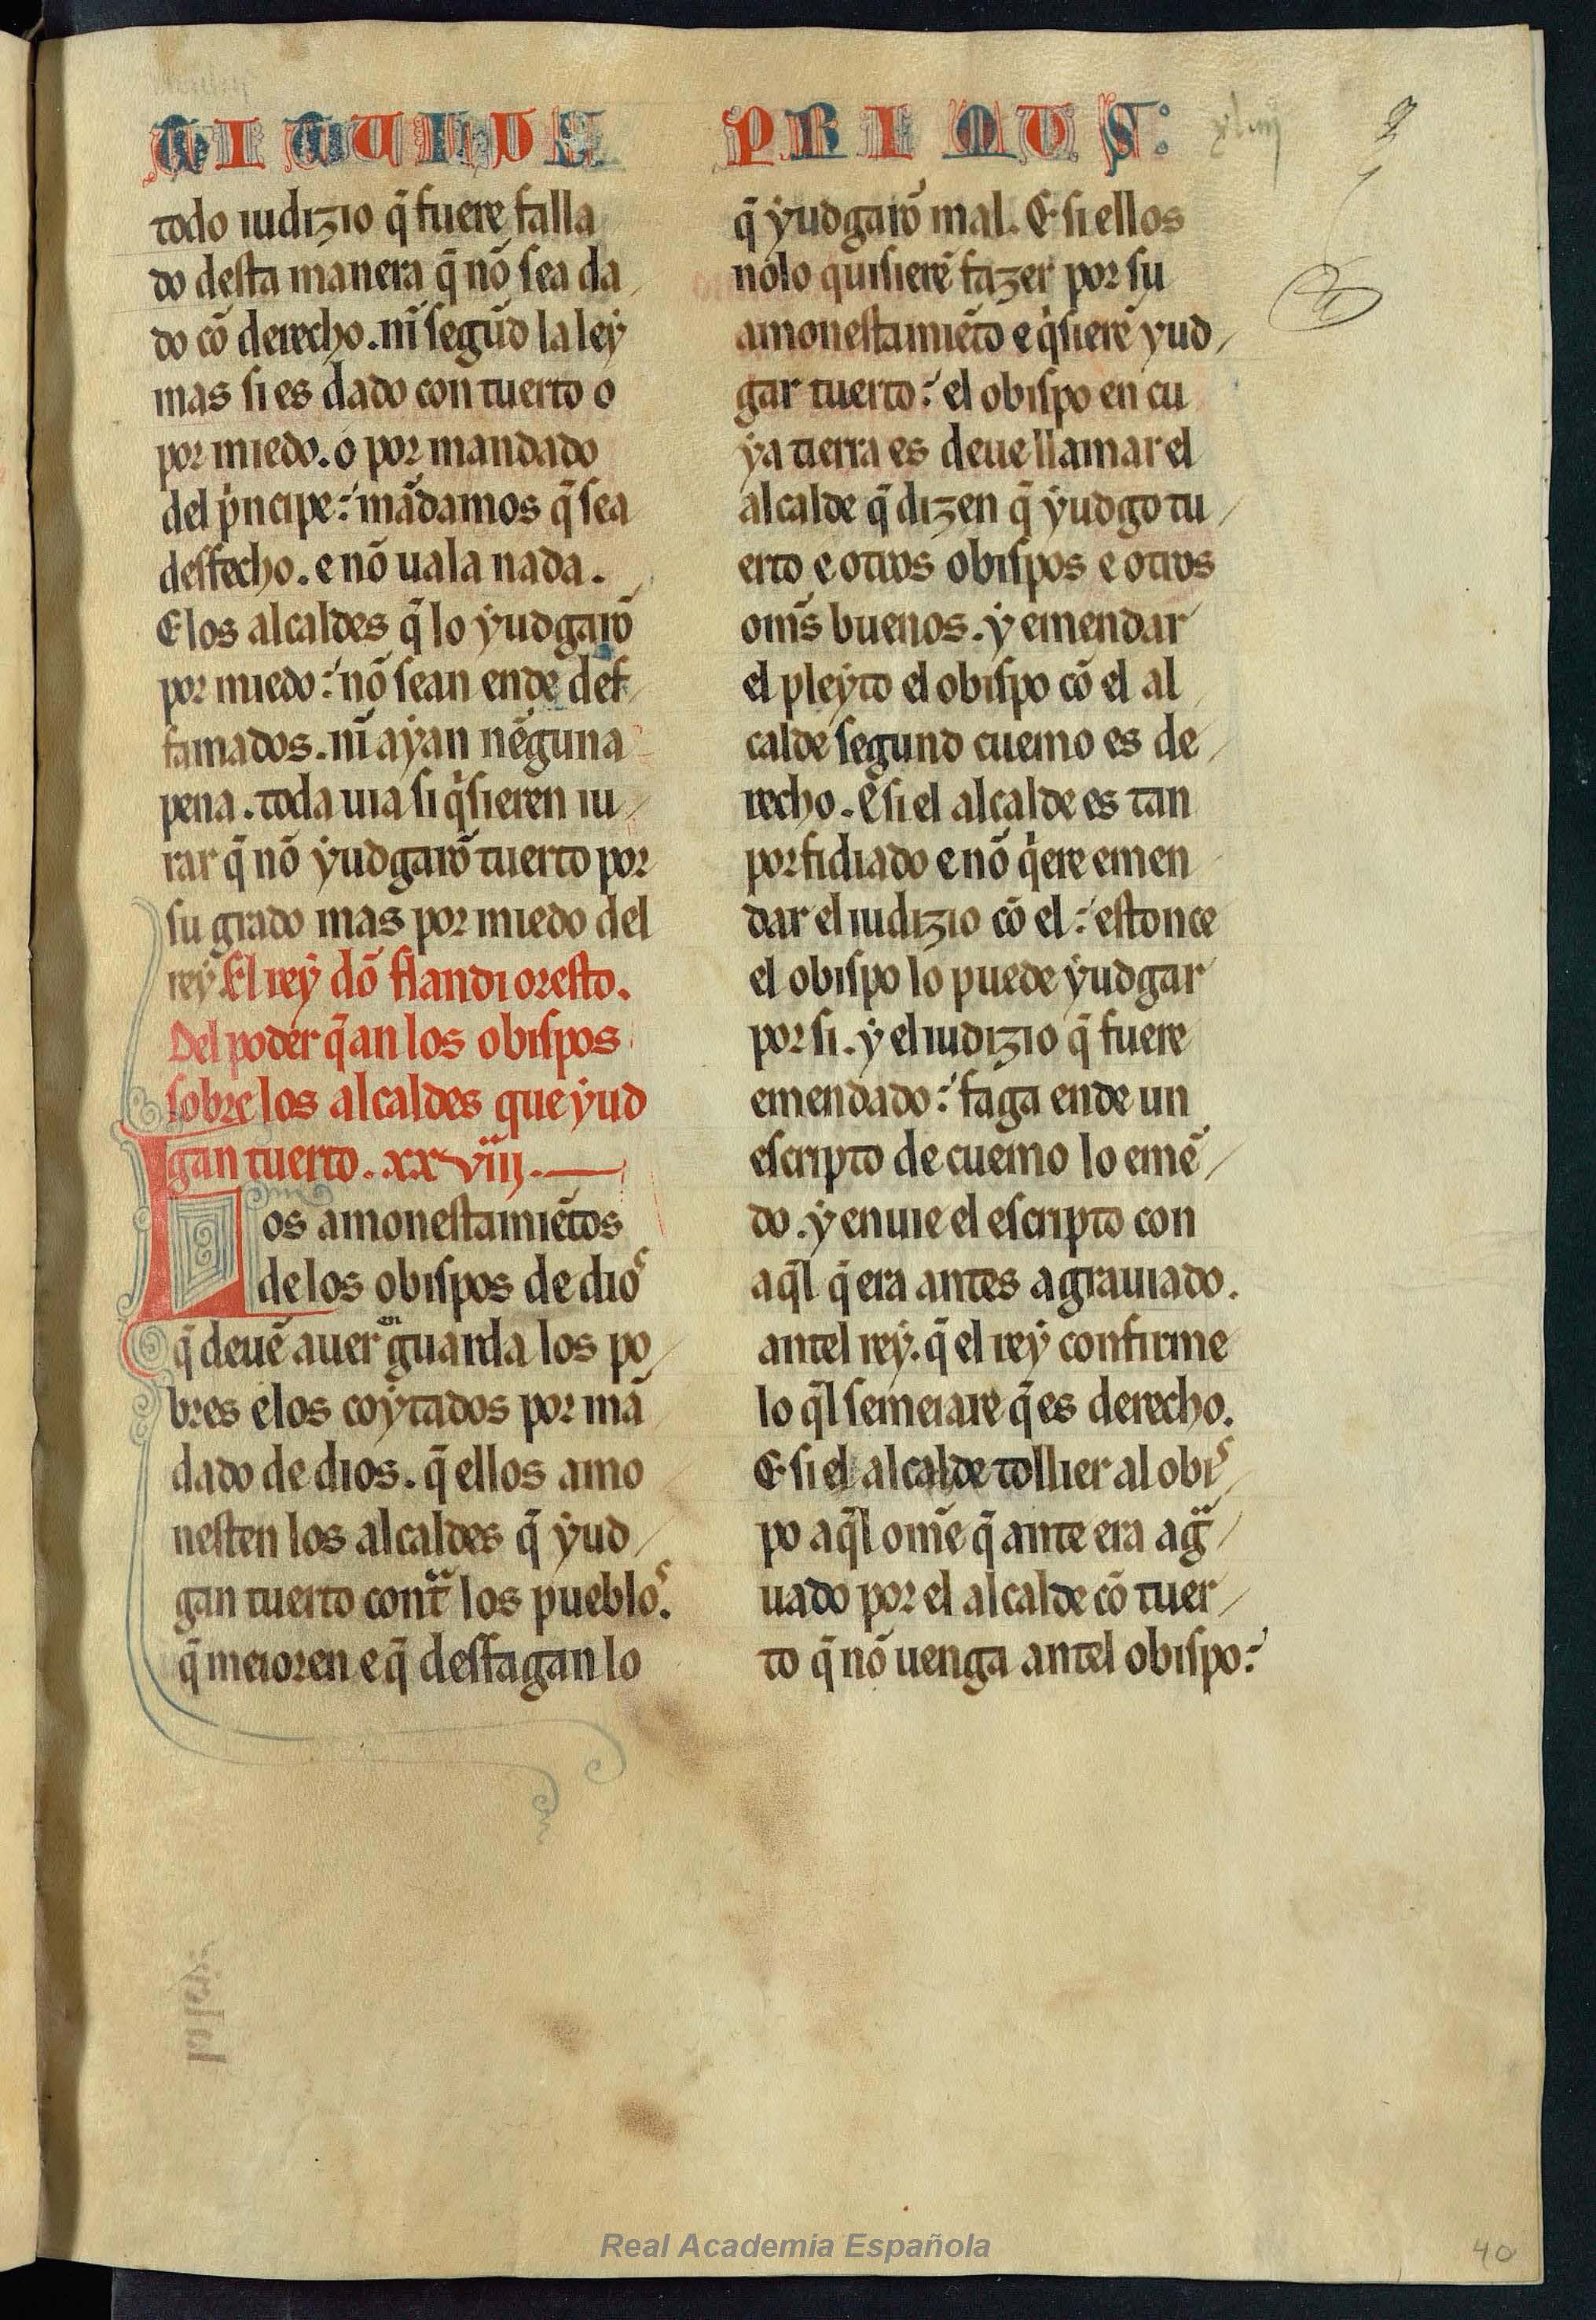 TITULUS PRIMUS:
xliiij
todo iudizio q̃ fuere falla
do desta manera q̃ nõ sea da
do cõ derecho. nĩ segũdo la leẏ
mas si es dado con tuerto o
por miedo. o por mandado
del pͥncipe: mãdamos q̃ sea
desfecho. e nõ uala nada.
E los alcaldes q̃ lo ẏudgarõ
por miedo: nõ sean ende def
famados. nĩ aẏan nẽguna
pena. toda uia si qͥsieren iu
rar q̃ nõ ẏudgarõ tuerto por
su grado mas por miedo del
reẏ El reẏ dõ flandioresto.
Del poder q̃ an los obispos
sobre los alcaldes que ẏud
gan tuerto. xxviij.
Los amonestamiẽtos
de los obispos de dios
q̃ deuẽ auer en guarda los po
bres e los coẏtados por mã
dado de dios. q̃ ellos amo
nesten los alcaldes q̃ ẏud
gan tuerto contᵃ los pueblos.
q̃ meioren e q̃ desfagan lo
q̃ ẏudgarõ mal. E si ellos
nolo quisierẽ fazer por su
amonestamiẽto e qͥsierẽ ẏud
gar tuerto: el obispo en cu
ẏa tierra es deue llamar el
alcalde q̃ dizen q̃ ẏudgo tu
erto e otros obispos e otros
om̃s buenos. ẏ emendar
el pleẏto el obispo cõ el al
calde segund cuemo es de
recho. E si el alcalde es tan
porfidiado e nõ qͥere emen
dar el iudizio cõ el: estonce
el obispo lo puede ẏudgar
por si. ẏ el iudizio q̃ fuere
emendado: faga ende un
escripto de cuemo lo emẽ
do. ẏ enuie el escripto con
aq̃l q̃ era antes agrauiado.
antel reẏ. q̃ el reẏ confirme
lo q̃l semeiare q̃ es derecho.
E si el alcalde tollier al obis
po aq̃l om̃e q̃ ante era agᵃ
uado por el alcalde cõ tuer
to q̃ nõ uenga antel obispo:
la leẏ
Real Academia Española
40